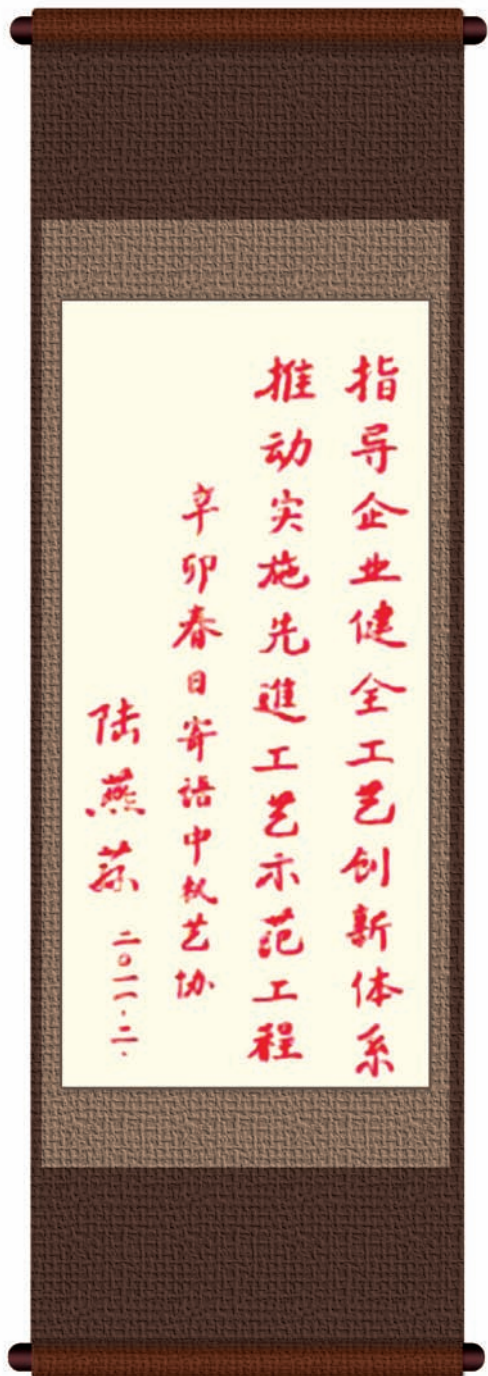 指导企业健全工艺创新体系
推动实施先進工艺示范工程
辛卯春日寄语中机艺协
陆燕荪 二〇一一.二.